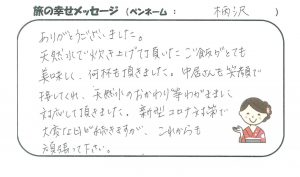 旅の幸せメッセージ（ペンネーム： 柄沢 ）
ありがとうございました。
天然水で炊き上げて頂いたご飯がとても
美味しく、何杯も頂きました。中居さんも笑顔で
接してくれ、天然水のおかわり等わがままに
対応して頂きました。新型コロナ対策で
大変な日が続きますが、これからも
頑張って下さい。